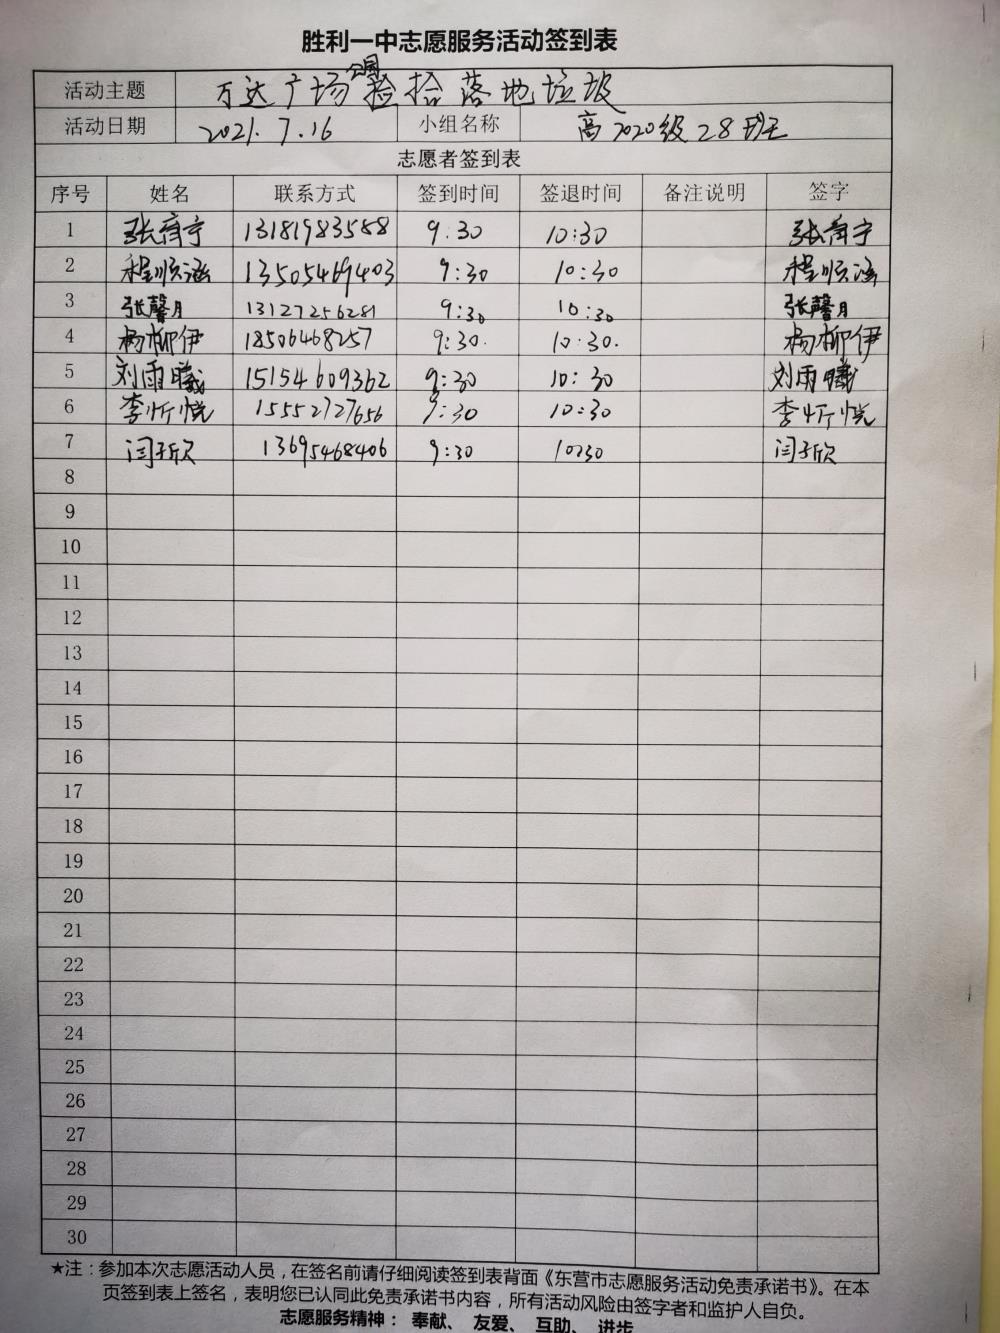 胜利一中志愿服务活动签到表
活动主题 万达广场公园捡拾落地垃圾
活动日期 2021.7.16 小组名称 高2020级28班
志愿者签到表
序号 姓名 联系方式 签到时间 签退时间 备注说明 签字
1 张 13181983588 9:30 10:30 张
2 程顺涵 13505469403 9:30 10:30 程顺涵
3 张馨月 13127256281 9:30 10:30 张馨月
4 杨柳伊 18506468257 9:30. 10:30. 杨柳伊
5 刘雨曦 15154609362 9:30 10:30 刘雨曦
6 李忻悦 15552727656 9:30 10:30 李忻悦
7 闫子欣 13695468406 9:30 10:30 闫子欣
8
9
10
11
12
13
14
15
16
17
18
19
20
21
22
23
24
25
26
27
28
29
30
★注：参加本次志愿活动人员，在签名前请仔细阅读签到表背面《东营市志愿服务活动免责承诺书》。在本
页签到表上签名，表明您已认同此免责承诺书内容，所有活动风险由签字者和监护人自负。
志愿服务精神： 奉献、 友爱、 互助、 进步